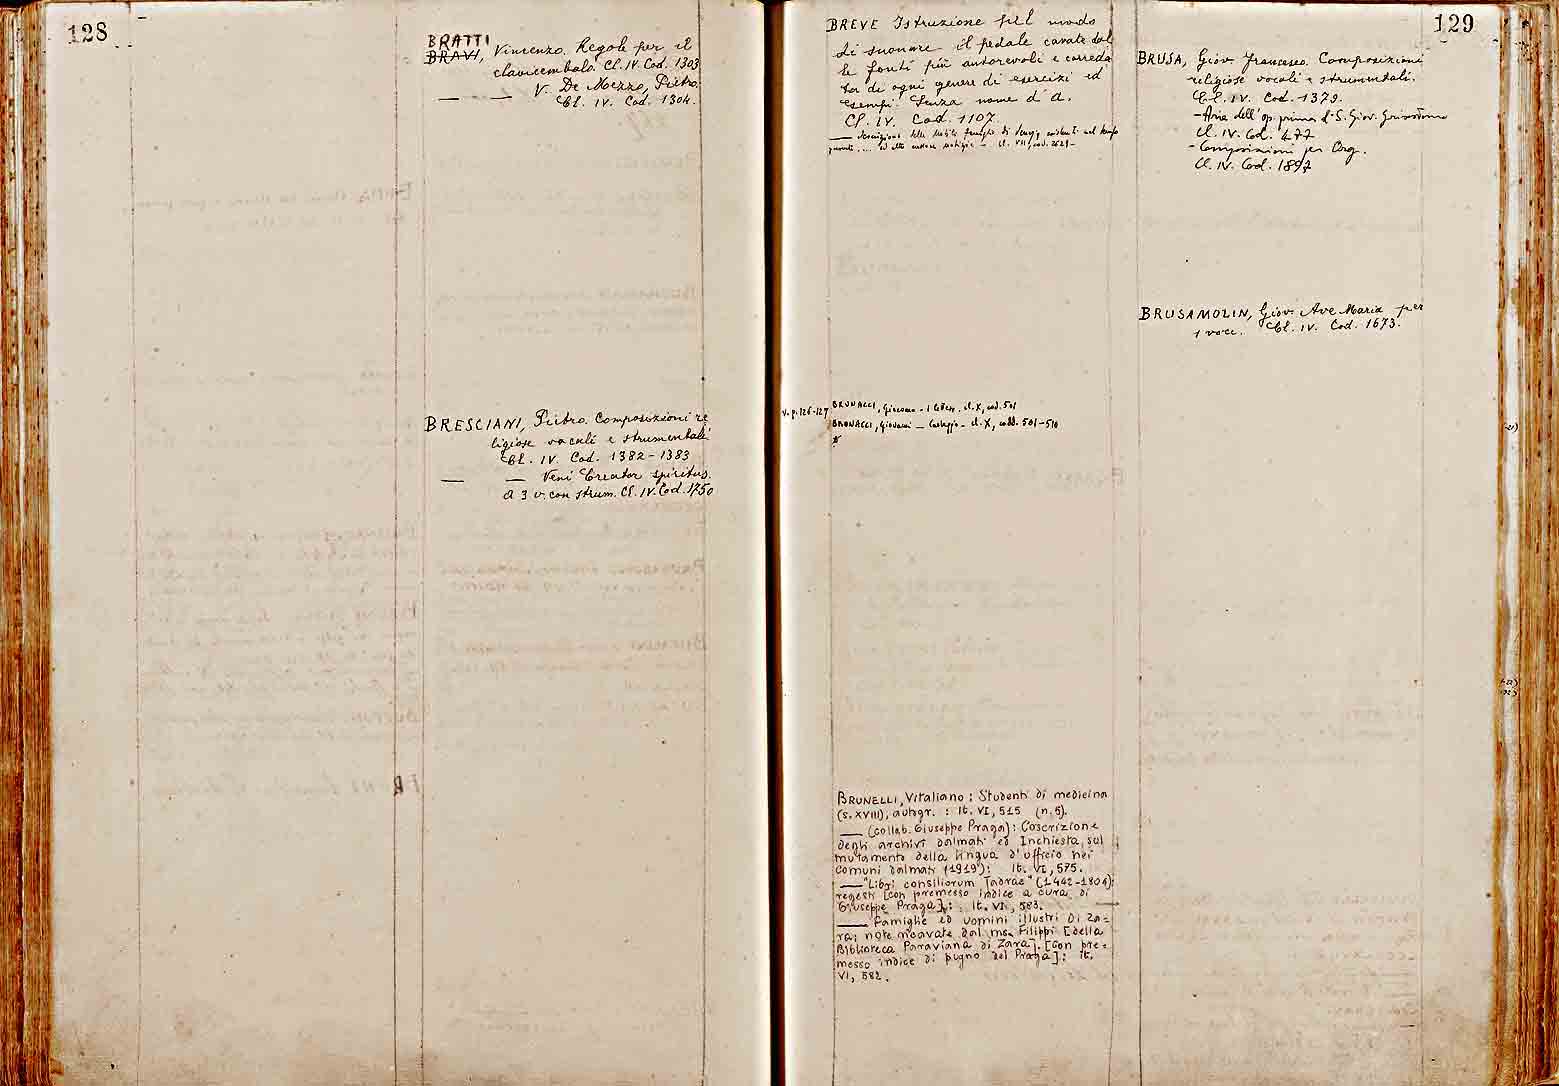 128
BRATTI
BRAVI, Vincenzo. Regole per il
clavicembalo. Cl. IV. Cod. 1303
V. De Mezzo, Pietro.
— — Cl. IV. Cod. 1304.
BRESCIANI, Pietro. Composizioni re
ligiose vocali e strumentali
Cl. IV. Cod. 1382-1383
— — Veni Creator spiritus.
a 3 v. con strum. Cl. IV. Cod. 1750
129
BREVE Istruzione pel modo
di suonare il pedale cavate dal
le fonti più autorevoli e correda
ta di ogni genere di esercizi ed
esempi. Senza nome d'a.
Cl. IV. Cod. 1107.
— descrizione delle Nobile famiglie di Venezia esistenti nel
ed altre cl. VII, cod. 2629-
v. p. 126-127 BRUNACCI, Giacomo - 1 lettera. cl. X, cod. 501
BRUNACCI, Giovanni — Carteggio - cl. X, codd. 501-510
BRUNELLI, Vitaliano: Studenti di medicina
(s. XVIII), autogr. : It. VI, 515 (n. 5).
— (collab. Giuseppe Praga): Coscrizione
degli archivi dalmati ed Inchiesta sul
mutamento della lingua d'ufficio nei
comuni dalmati (1919): It. VI, 575.
— "Libri consiliorum Iadrae" (1442-1804):
regesti [con premesso indice a cura di
Giuseppe Praga]: It. VI, 583.
— Famiglie ed uomini illustri di Za=
ra; note ricavate dal ms. Filippi [della
Biblioteca Paraviana di Zara]. [Con pre=
messo indice di pugno del Praga]: It.
VI, 582.
BRUSA, Giov. Francesco. Composizioni
religiose vocali e strumentali.
Cl. IV. Cod. 1379.
- Aria dell'op. prima d. S. Giov. Grisostomo
Cl. IV. Cod. 477
- Composizioni per Org.
Cl. IV. Cod. 1897
BRUSAMOLIN, Giov. Ave Maria per
1 voce. Cl. IV. Cod. 1673.